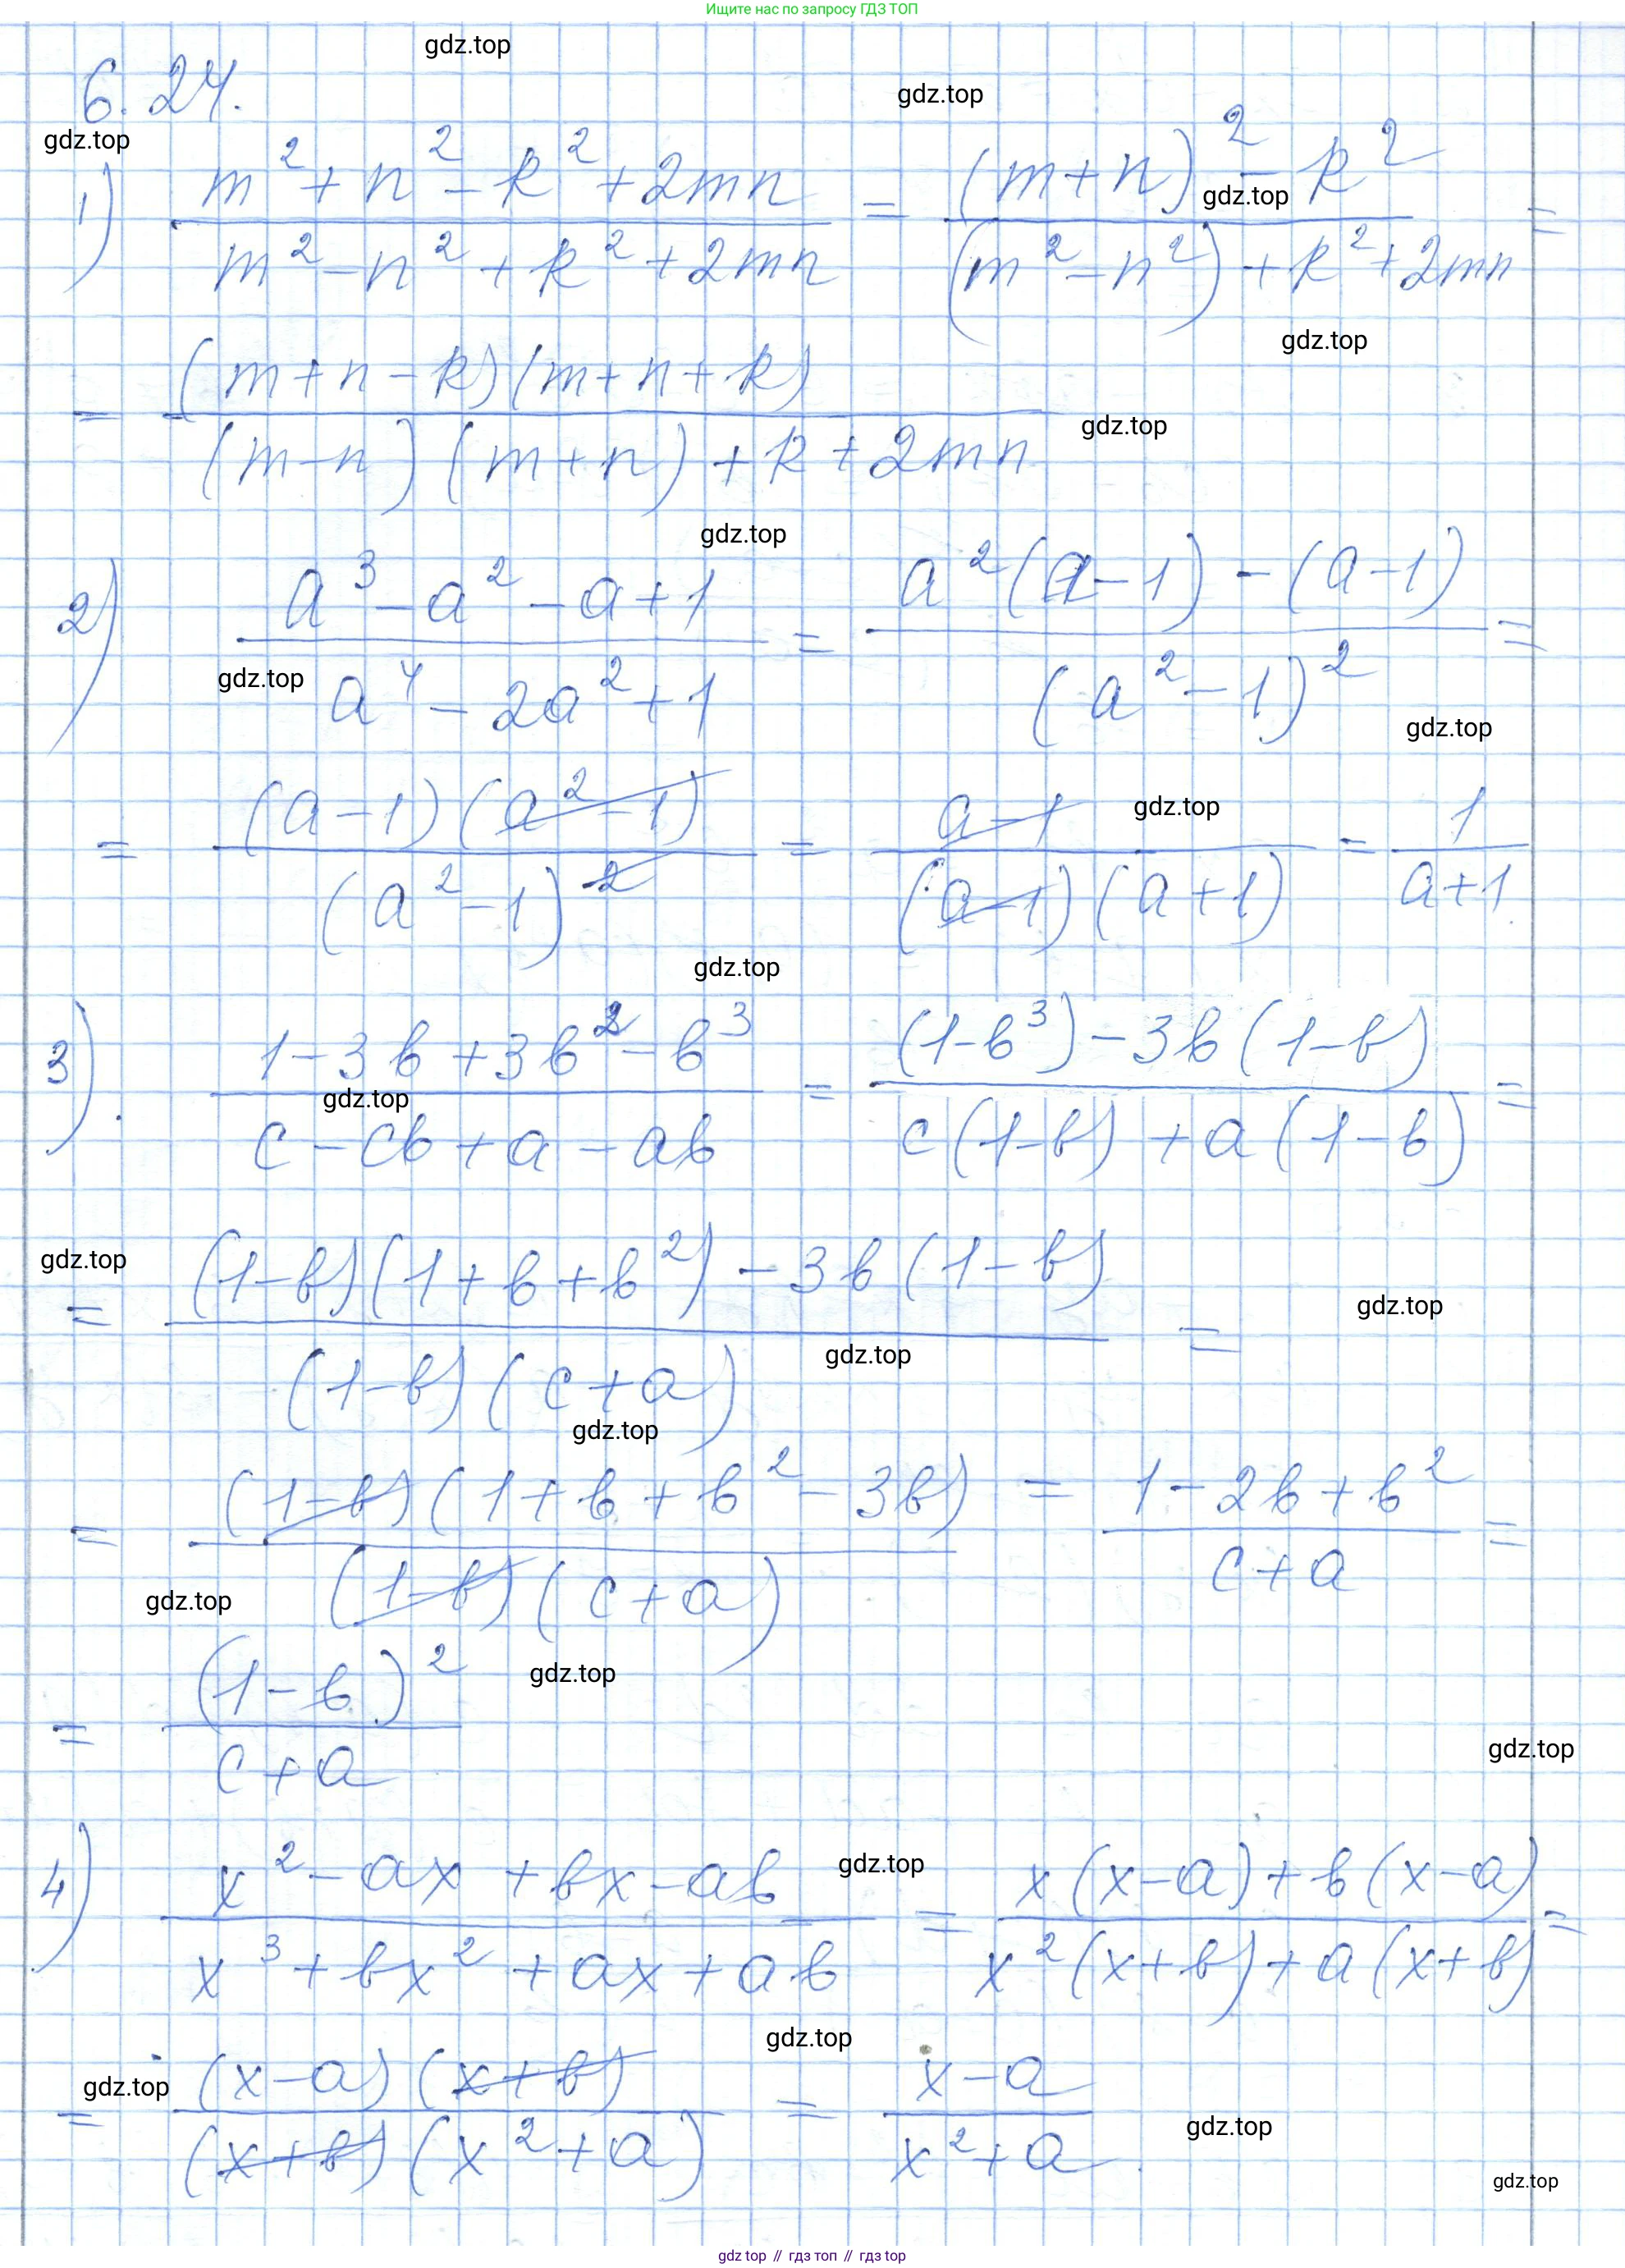 Ищите нас по запросу ГДЗ ТОП
gdz.top
gdz.top
6.24.
gdz.top
1) (m² + n² - k² + 2mn)/(m² - n² + k² + 2mn) = ((m+n)² - k²)/((m² - n²) + k² + 2mn) =
gdz.top
gdz.top
= ((m+n-k)(m+n+k))/((m-n)(m+n) + k + 2mn)
gdz.top
gdz.top
2) (a³ - a² - a + 1)/(a⁴ - 2a² + 1) = (a²(a-1) - (a-1))/((a² - 1)²) =
gdz.top
gdz.top
= ((a-1)(a² - 1))/((a² - 1)²) = (a-1)/((a-1)(a+1)) = 1/(a+1)
gdz.top
gdz.top
3). (1 - 3b + 3b² - b³)/(c - cb + a - ab) = ((1-b³) - 3b(1-b))/(c(1-b) + a(1-b)) =
gdz.top
gdz.top
= ((1-b)(1+b+b²) - 3b(1-b))/((1-b)(c+a)) =
gdz.top
gdz.top
gdz.top
= ((1-b)(1+b+b² - 3b))/((1-b)(c+a)) = (1 - 2b + b²)/(c+a) =
gdz.top
= (1-b)²/(c+a)
gdz.top
gdz.top
4) (x² - ax + bx - ab)/(x³ + bx² + ax + ab) = (x(x-a) + b(x-a))/(x²(x+b) + a(x+b)) =
gdz.top
gdz.top
= ((x-a)(x+b))/((x+b)(x² + a)) = (x-a)/(x² + a).
gdz.top
gdz.top
gdz.top
gdz.top // гдз топ // гдз top